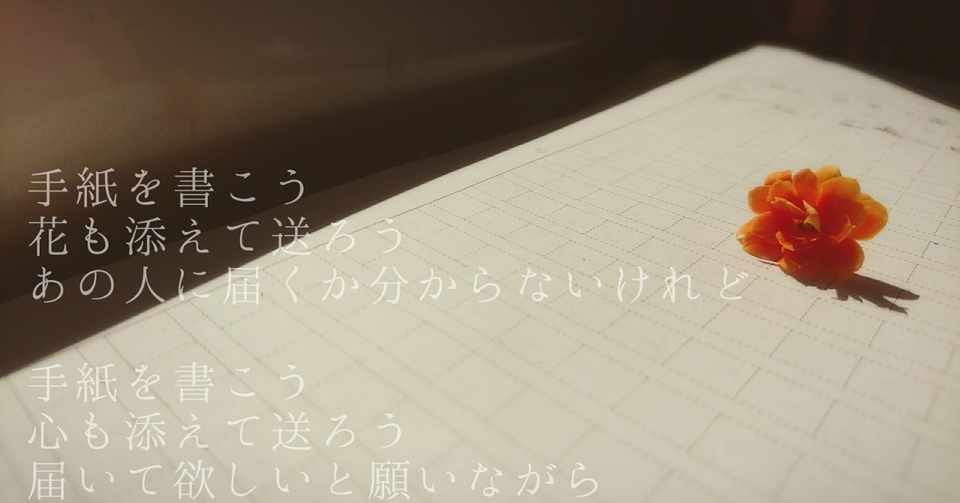 手紙を書こう
花も添えて送ろう
あの人に届くか分からないけれど
手紙を書こう
心も添えて送ろう
届いて欲しいと願いながら